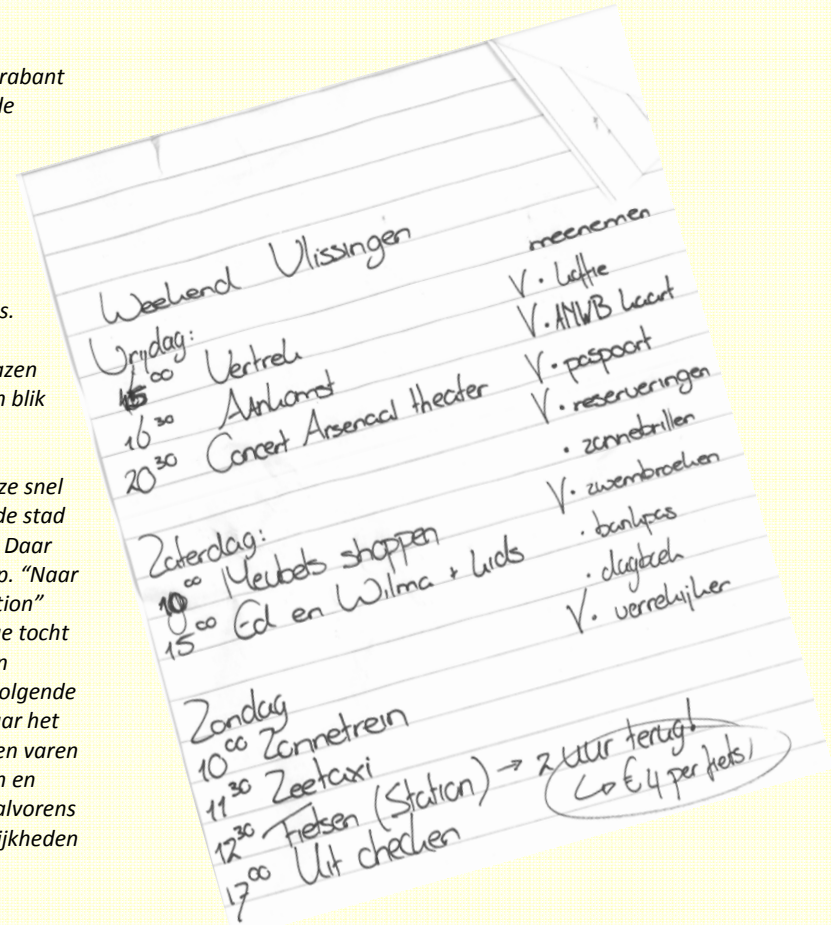 rabant
de
s.
azen
n blik
ze snel
de stad
Daar
p. “Naar
tion”
ge tocht
n
olgende
ar het
en varen
n en
alvorens
ijkheden
Weekend Vlissingen
Vrijdag:
00 Vertrek
16 30 Aankomst
20 30 Concert Arsenaal theater
Zaterdag:
10 00 Meubels shoppen
15 00 Ed en Wilma + kids
Zondag
10 00 Zonnetrein
11 30 Zeetaxi
12 30 Fietsen (Station) → 2 uur terug!
↳ € 4 per fiets!
17 00 Uit checken
meenemen
V • koffie
V • ANWB kaart
V • paspoort
V • reserveringen
• zonnebrillen
V • zwembroeken
• bankpas
• dagboek
V • verrekijker